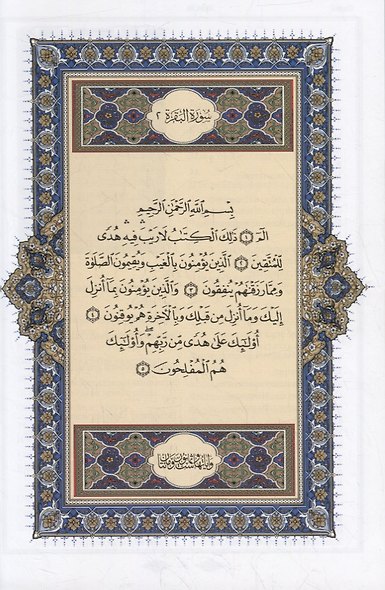 سُورَةُ البَقَرَةِ ٢
بِسْمِ اللَّهِ الرَّحْمَٰنِ الرَّحِيمِ
الٓمٓ ١ ذَٰلِكَ الْكِتَابُ لَا رَيْبَ ۛ فِيهِ ۛ هُدًى
لِلْمُتَّقِينَ ٢ الَّذِينَ يُؤْمِنُونَ بِالْغَيْبِ وَيُقِيمُونَ الصَّلَوٰةَ
وَمِمَّا رَزَقْنَٰهُمْ يُنْفِقُونَ ٣ وَالَّذِينَ يُؤْمِنُونَ بِمَا أُنْزِلَ
إِلَيْكَ وَمَا أُنْزِلَ مِنْ قَبْلِكَ وَبِالْآخِرَةِ هُمْ يُوقِنُونَ ٤
أُولَٰئِكَ عَلَىٰ هُدًى مِنْ رَبِّهِمْ ۖ وَأُولَٰئِكَ
هُمُ الْمُفْلِحُونَ ٥
وَآيَاتُهَا سِتٌّ وَثَمَانُونَ وَمِائَتَانِ